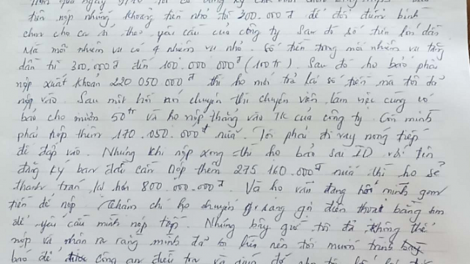 tiền nộp những khoản tiền nhỏ từ 200.000đ để đổi điểm bình
chọn cho ca sĩ theo yêu cầu của công ty Sau đó số tiền lớn dần
Mã mỗi nhiệm vụ có 4 nhiệm vụ nhỏ. Số tiền trong mỗi nhiệm vụ tăng
dần từ 300.000đ đến 100.000.000đ (100tr). Sau đó họ báo phải
nộp xuất khoản 220.050.000đ thì họ mới trả lại số tiền mà tôi đã
nộp vào. Sau một hồi nói chuyện thì chuyên viên làm việc cùng có
báo cho mượn 50tr và họ nộp thẳng vào TK của công ty. Còn mình
phải nộp thêm 170.050.000đ nữa. Tôi phải đi vay nóng tiếp
để đắp vào. Nhưng khi nộp xong thì họ báo sai ID với tên
đăng ký ban đầu cần nộp thêm 275.160.000đ nữa thì họ sẽ
thanh trả lại hơn 800.000.000đ. Và họ vẫn đang mình gom
tiền để nộp. Thậm chí họ chuyển sang gọi điện thoại bằng
để yêu cầu mình nộp tiếp. Nhưng bây giờ tôi đã không thể
nộp và nhận ra rằng mình đã bị lừa nên tôi muốn trình
báo để công an điều tra và